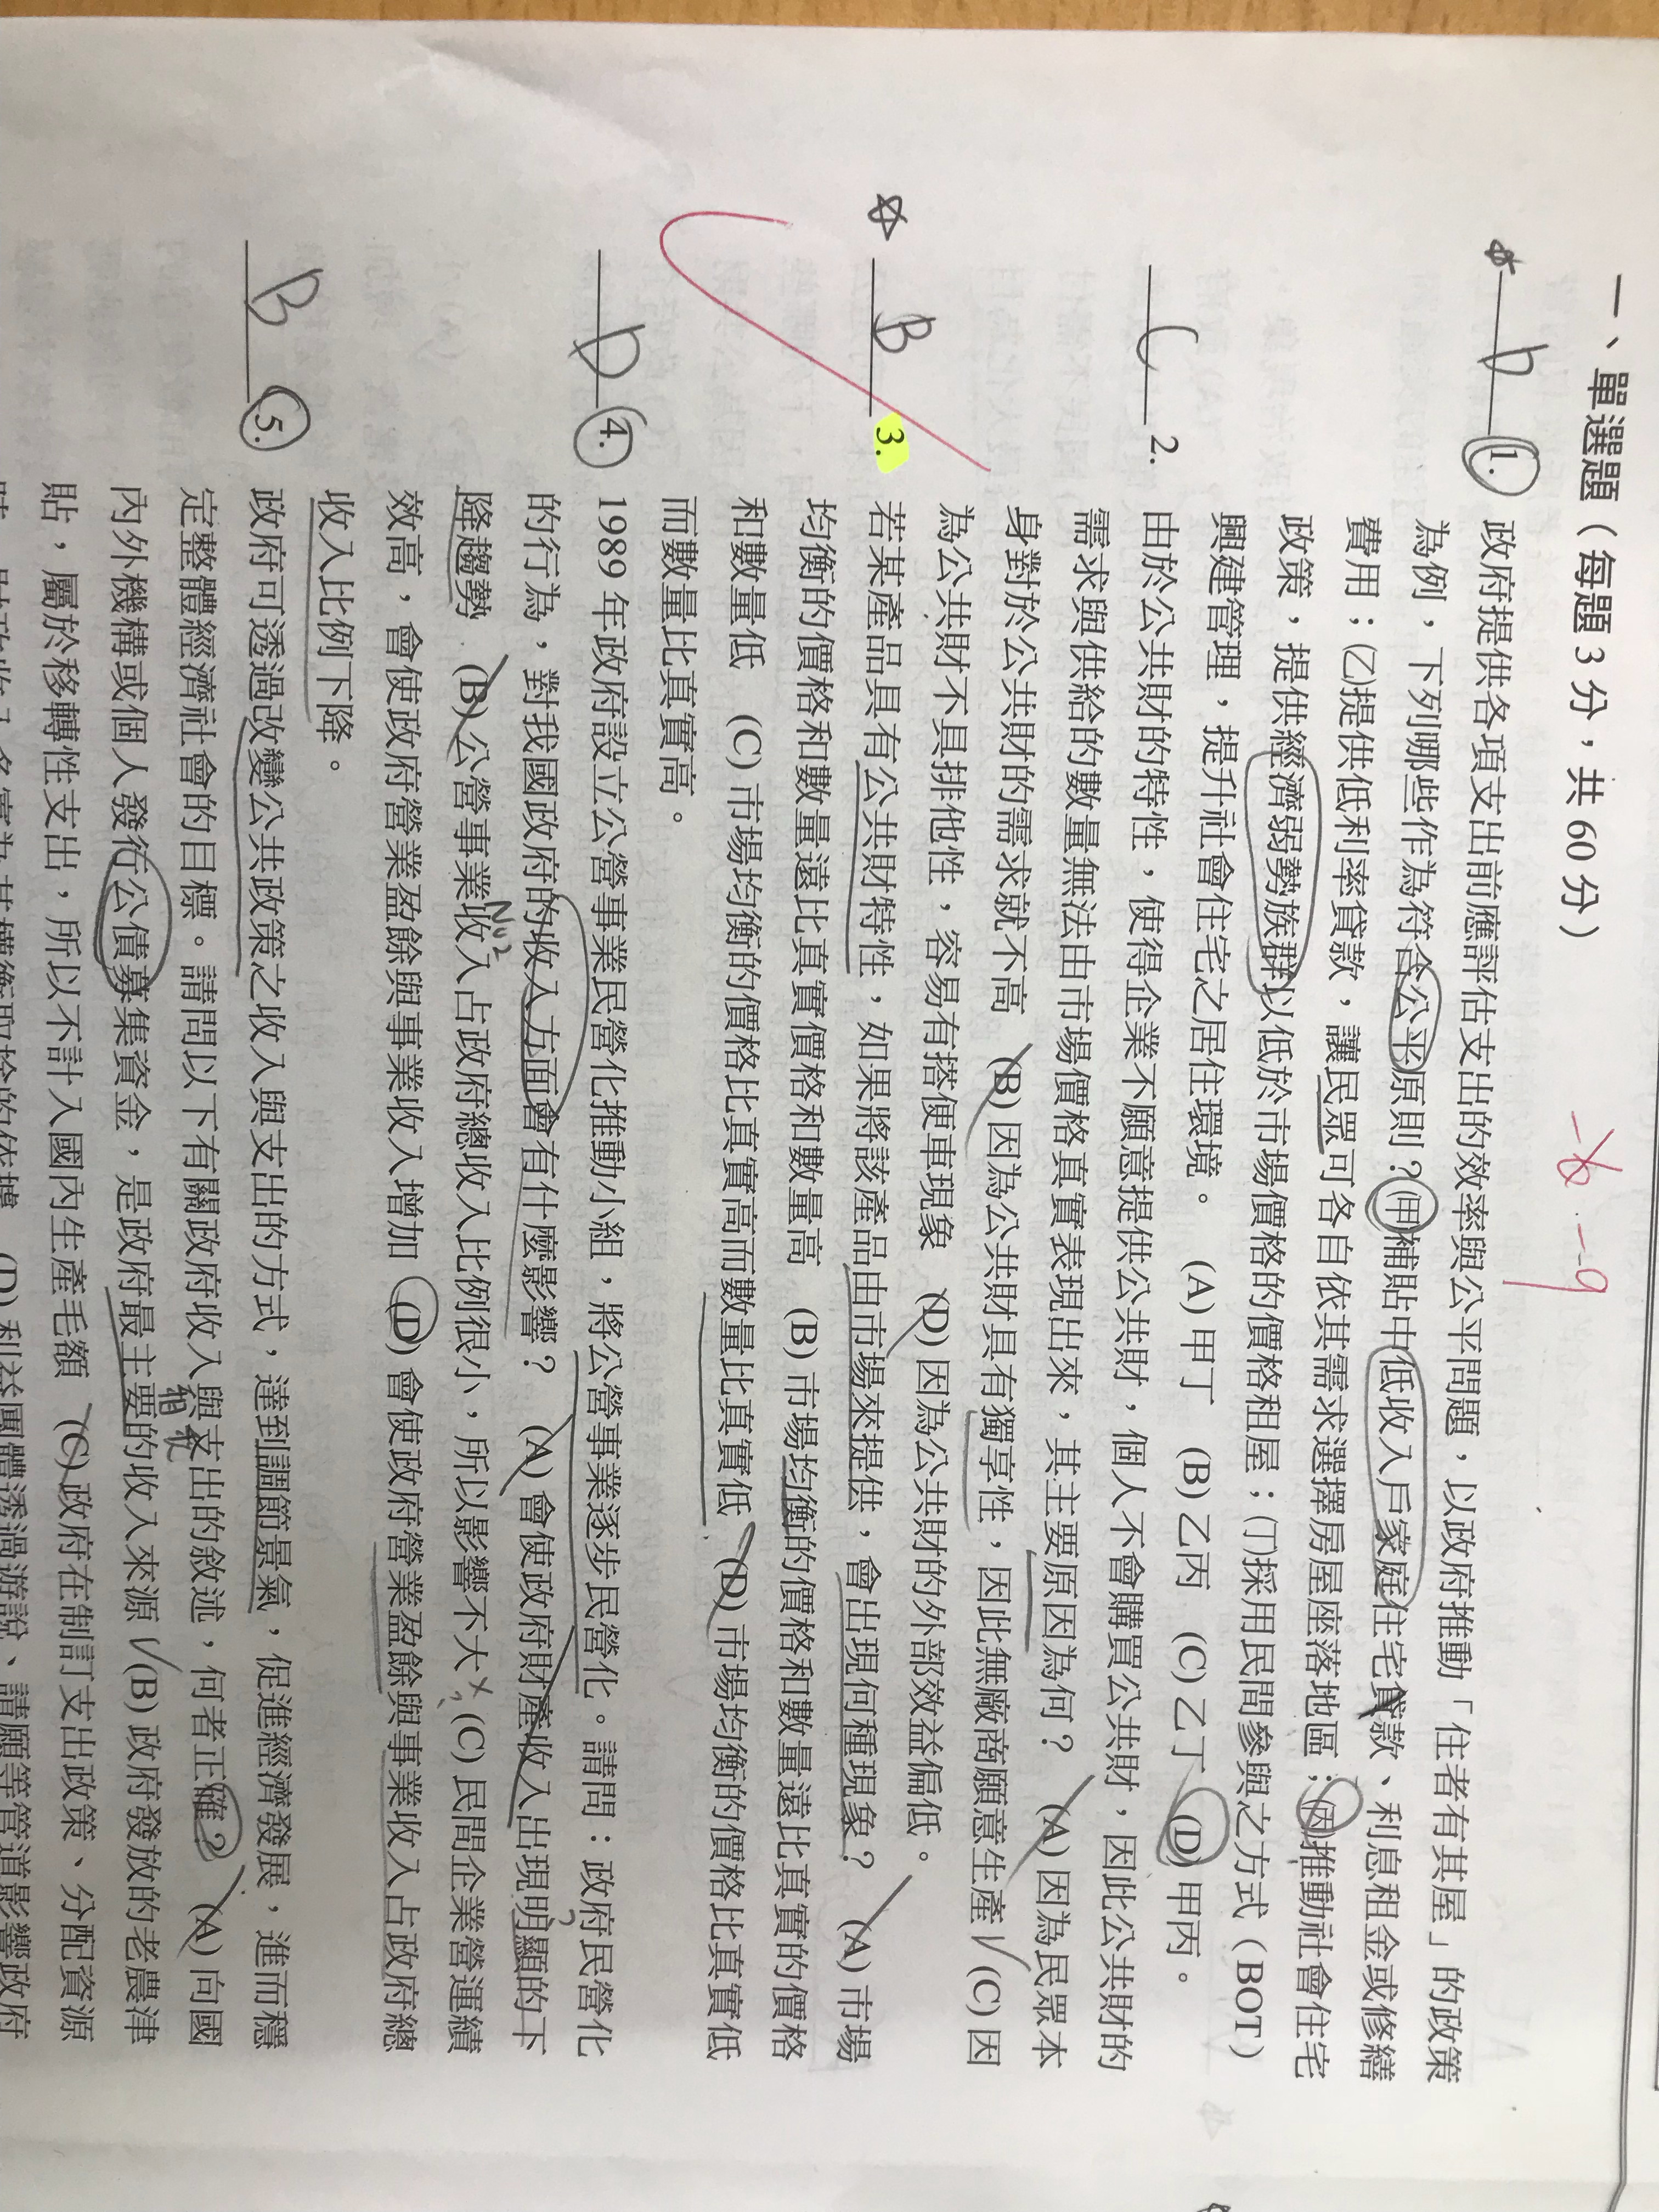 一、單選題(每題 3 分,共 60 分)
-6 -9
D 1. 政府提供各項支出前應評估支出的效率與公平問題,以政府推動「住者有其屋」的政策
為例,下列哪些作為符合公平原則?(甲)補貼中低收入戶家庭住宅貸款、利息租金或修繕
費用;(乙)提供低利率貸款,讓民眾可各自依其需求選擇房屋座落地區;(丙)推動社會住宅
政策,提供經濟弱勢族群以低於市場價格的價格租屋;(丁)採用民間參與之方式(BOT)
興建管理,提升社會住宅之居住環境。 (A) 甲丁 (B) 乙丙 (C) 乙丁 (D) 甲丙。
C 2. 由於公共財的特性,使得企業不願意提供公共財,個人不會購買公共財,因此公共財的
需求與供給的數量無法由市場價格真實表現出來,其主要原因為何? (A) 因為民眾本
身對於公共財的需求就不高 (B) 因為公共財具有獨享性,因此無廠商願意生產 (C) 因
為公共財不具排他性,容易有搭便車現象 (D) 因為公共財的外部效益偏低。
B 3. 若某產品具有公共財特性,如果將該產品由市場來提供,會出現何種現象? (A) 市場
均衡的價格和數量遠比真實價格和數量高 (B) 市場均衡的價格和數量遠比真實的價格
和數量低 (C) 市場均衡的價格比真實高而數量比真實低 (D) 市場均衡的價格比真實低
而數量比真實高。
D 4. 1989 年政府設立公營事業民營化推動小組,將公營事業逐步民營化。請問:政府民營化
的行為,對我國政府的收入方面會有什麼影響? (A) 會使政府財產收入出現明顯的下
降趨勢 (B) 公營事業收入占政府總收入比例很小,所以影響不大 (C) 民間企業營運績
No2
效高,會使政府營業盈餘與事業收入增加 (D) 會使政府營業盈餘與事業收入占政府總
收入比例下降。
B 5. 政府可透過改變公共政策之收入與支出的方式,達到調節景氣,促進經濟發展,進而穩
定整體經濟社會的目標。請問以下有關政府收入與支出的敘述,何者正確? (A) 向國
內外機構或個人發行公債募集資金,是政府最主要的收入來源 (B) 政府發放的老農津
租稅
貼,屬於移轉性支出,所以不計入國內生產毛額 (C) 政府在制訂支出政策、分配資源
(D) 利益團體透過遊說、請願等管道影響政府